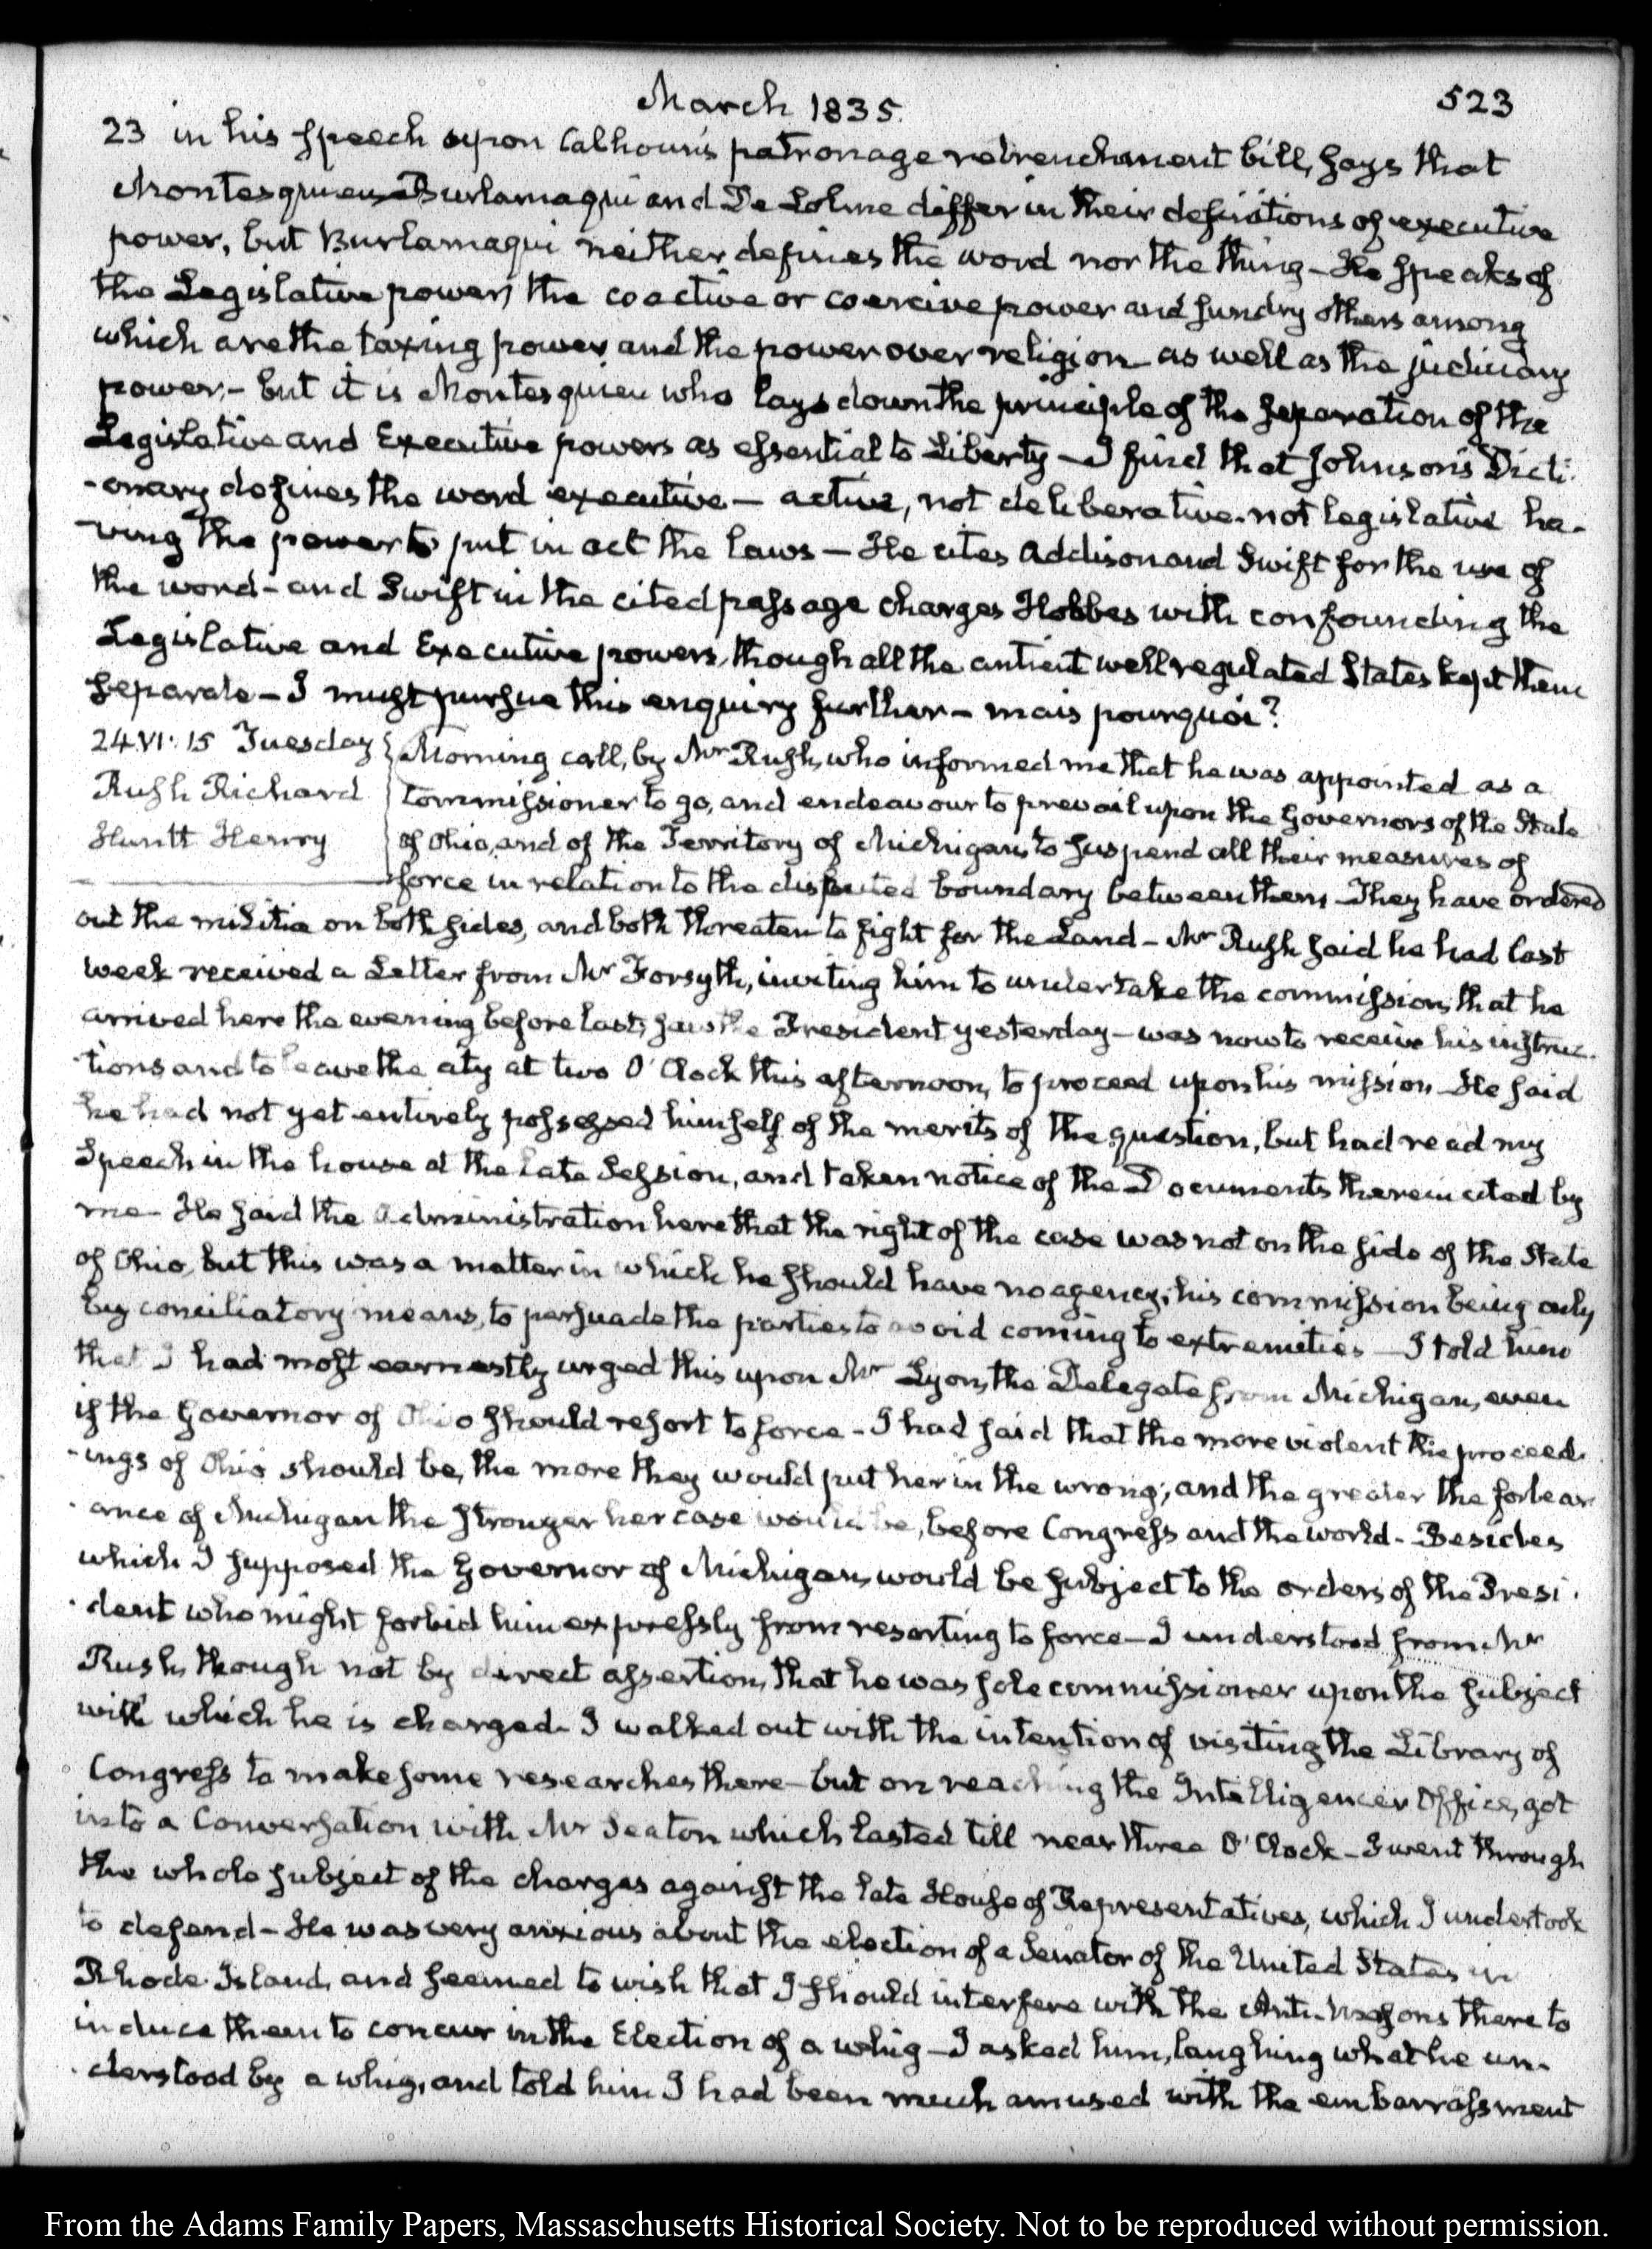 March 1835.
523
23 in his speech upon Calhoun's patronage retrenchment bill, says that
Montesquieu, Burlamaqui and De Lolme differ in their definitions of executive
power, but Burlamaqui neither defines the word nor the thing – He speaks of
the Legislative power, the coactive or coercive power and sundry others among
which are the taxing power and the power over religion as well as the judiciary
power;– but it is Montesquieu who lays down the principle of the separation of the
Legislative and Executive powers as essential to Liberty – I find that Johnson's Dicti-
-onary defines the word executive – active, not deliberative. not legislative ha-
-ving the power to put in act the laws – He cites Addison and Swift for the use of
the word – and Swift in the cited passage charges Hobbes with confounding the
Legislative and Executive powers, though all the antient well regulated States kept them
separate – I must pursue this enquiry further – mais pourquoi?
24. VI: 15 Tuesday
Rush Richard
Huntt Henry
Morning call, by Mr Rush, who informed me that he was appointed as a
Commissioner to go, and endeavour to prevail upon the Governors of the State
of Ohio, and of the Territory of Michigan, to suspend all their measures of
force in relation to the disputed boundary between them – They have ordered
out the militia on both sides, and both threaten to fight for the Land – Mr Rush said he had last
week received a Letter from Mr Forsyth, inviting him to undertake the commission, that he
arrived here the evening before last, saw the President yesterday – was now to receive his instruc-
-tions and to leave the city at two O'Clock this afternoon, to proceed upon his mission – He said
he had not yet entirely possessed himself of the merits of the question, but had read my
Speech in the house at the late Session, and taken notice of the Documents therein cited by
me – He said the Administration here that the right of the case was not on the side of the State
of Ohio, but this was a matter in which he should have no agency; his commission being only
by conciliatory means, to persuade the parties to avoid coming to extremities – I told him
that I had most earnestly urged this upon Mr Lyon, the Delegate from Michigan, even
if the Governor of Ohio should resort to force – I had said that the more violent the proceed-
-ings of Ohio should be, the more they would put her in the wrong; and the greater the forbear-
-ance of Michigan the stronger her case would be, before Congress and the world – Besides
which I supposed the Governor of Michigan, would be subject to the orders of the Presi-
-dent who might forbid him expressly from resorting to force – I understood from Mr
Rush, though not by direct assertion, that he was sole commissioner upon the subject
with which he is charged – I walked out with the intention of visiting the Library of
Congress to make some researches there – but on reaching the Intelligencer Office, got
into a Conversation with Mr Seaton which lasted till near three O'Clock – I went through
the whole subject of the charges against the late House of Representatives, which I undertook
to defend – He was very anxious about the election of a Senator of the United States in
Rhode-Island, and seemed to wish that I should interfere with the Anti-Masons there to
induce them to concur in the Election of a whig – I asked him, laughing what he un-
-derstood by a whig, and told him I had been much amused with the embarrassment
From the Adams Family Papers, Massachusetts Historical Society. Not to be reproduced without permission.